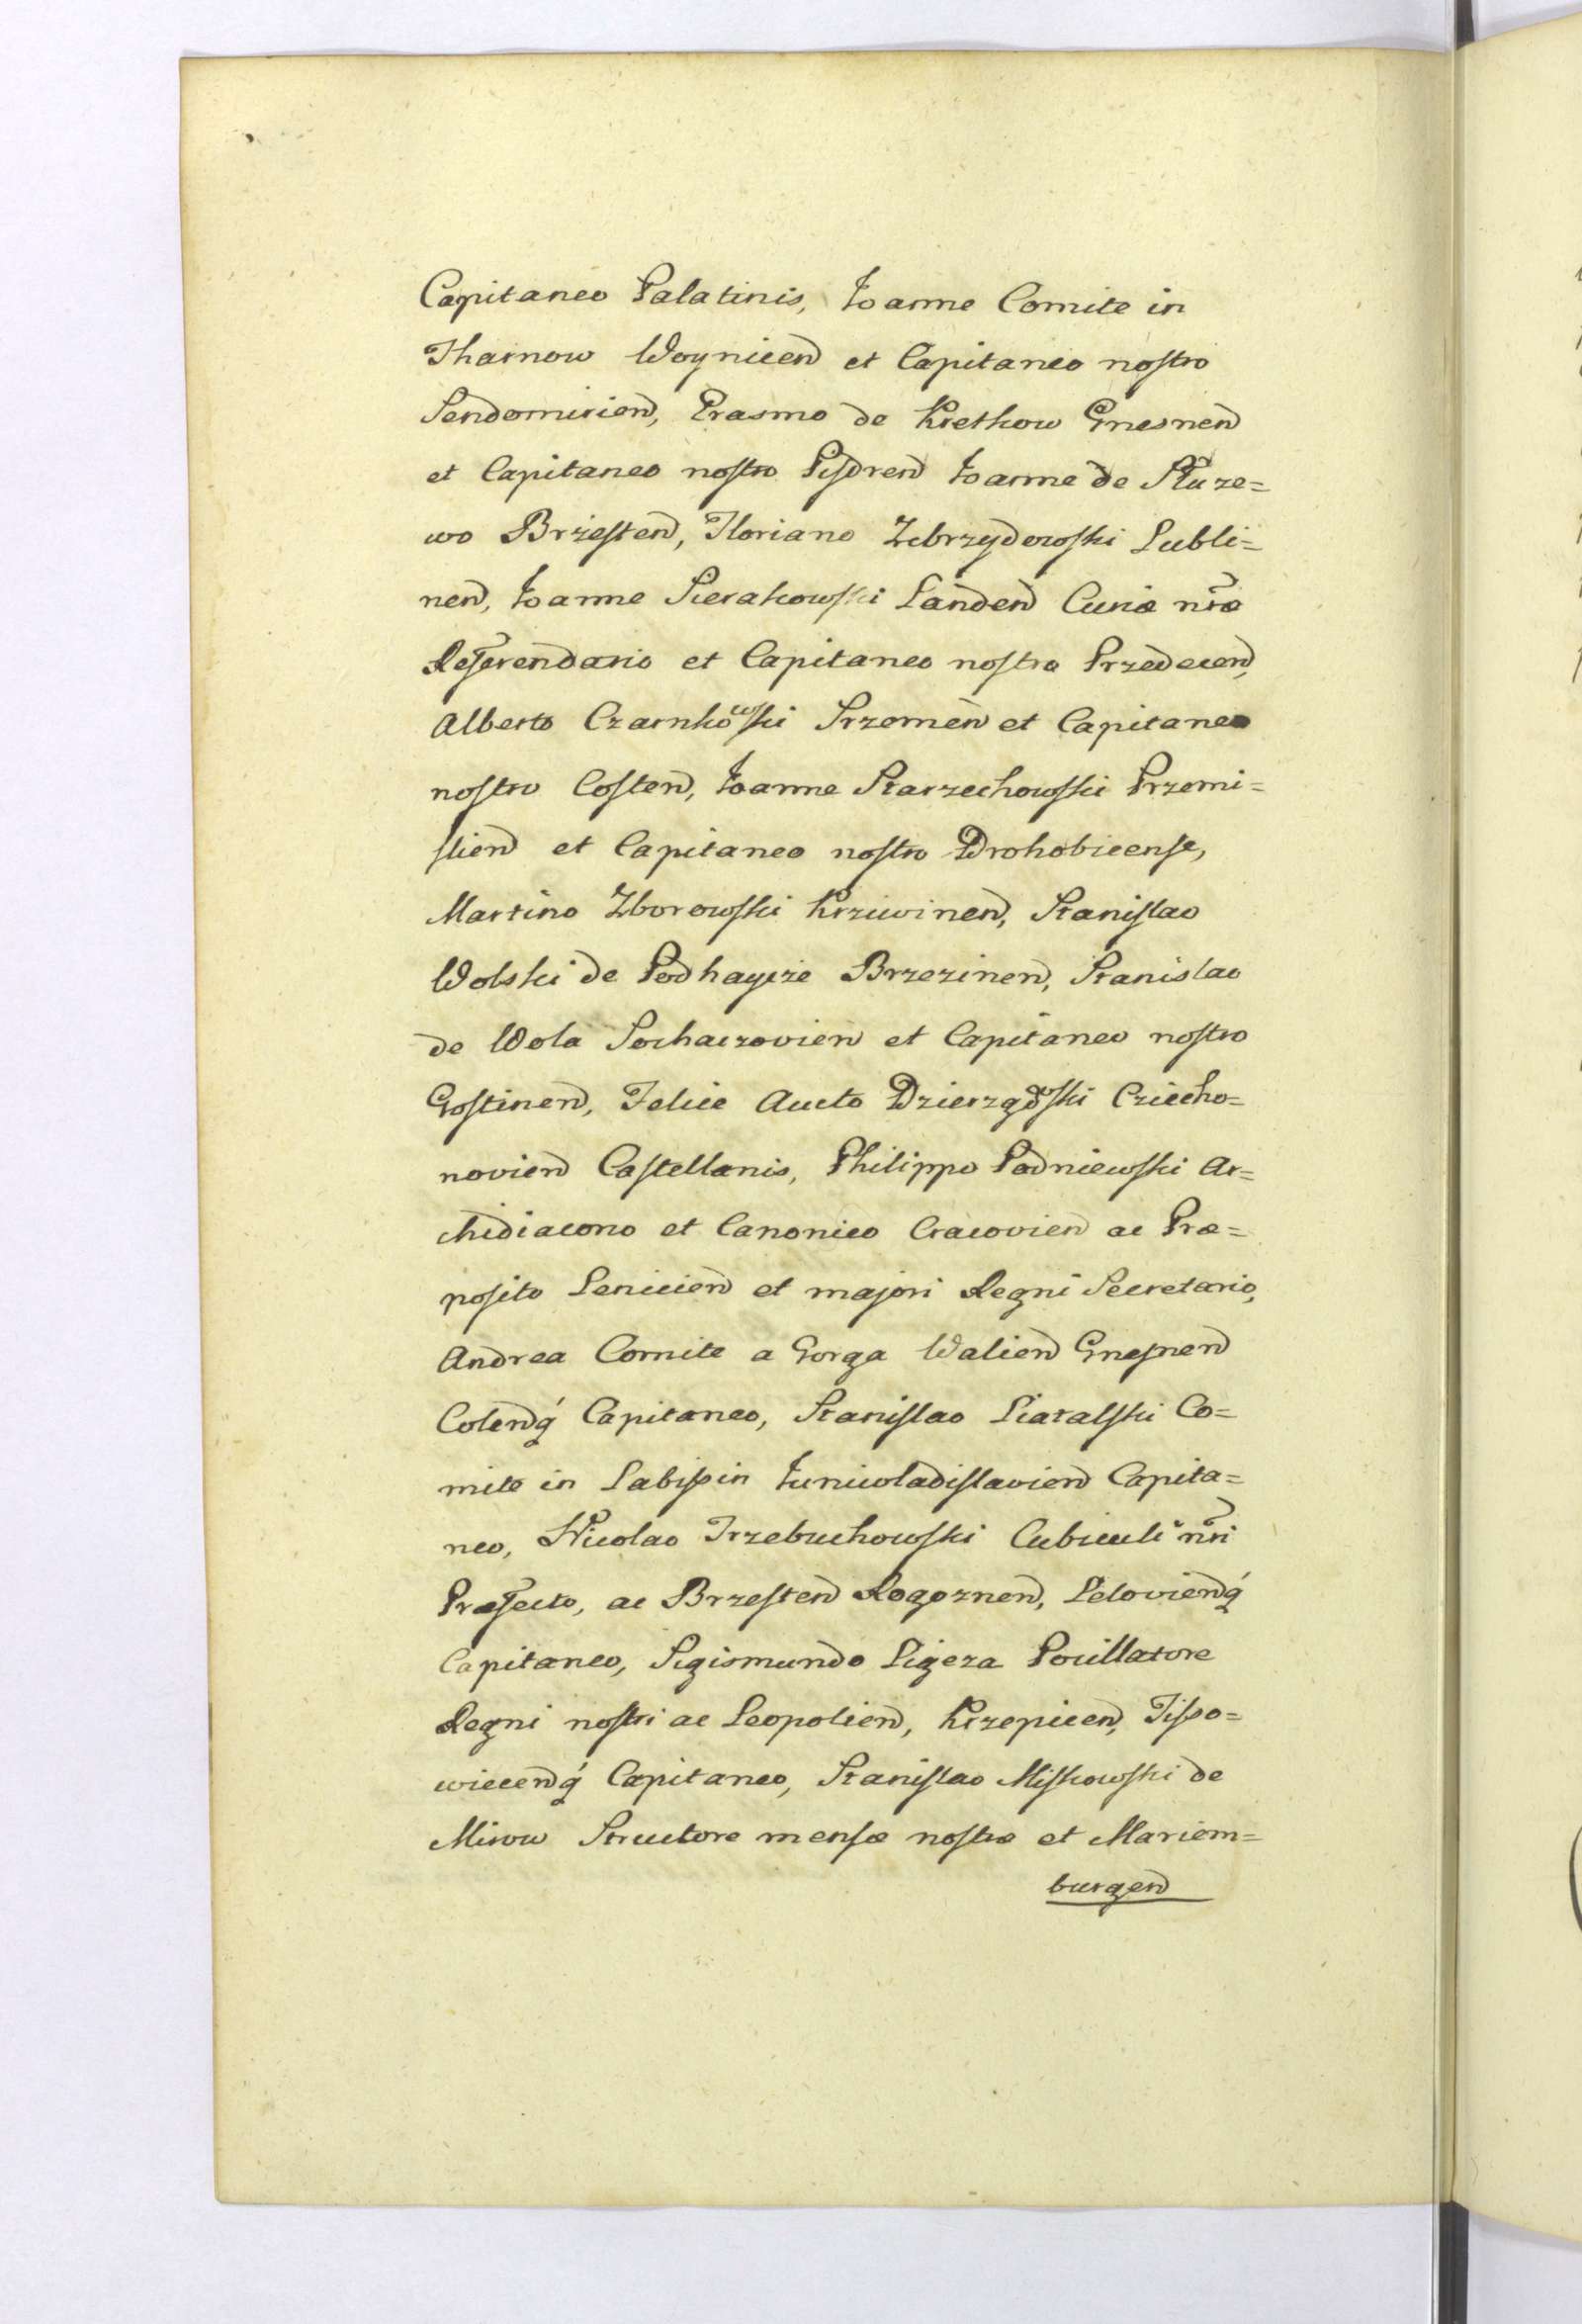 Capitaneo Palatinis, Joanne Comite in
Tharnow Woynicen̄ et Capitaneo nostro
Sendomirien̄, Erasmo de Krethow Gnesnen̄
et Capitaneo nostro Pisdren̄ Joanne de Służe=
wo Brzesten̄, Floriano Zebrzydowski Lubli=
nen̄, Joanne Sierakowski Landen̄ Curiæ nr̄æ
Referendario et Capitaneo nostro Przedecen̄,
Alberto Czarnkowski Srzemen̄ et Capitaneo
nostro Costen̄, Joanne Starzechowski Przemi=
slien̄ et Capitaneo nostro Drohobicense,
Martino Zborowski Krziwinen̄, Stanislao
Wolski de Podhaycze Brzezinen̄, Stanislao
de Wola Sochaczovien̄ et Capitaneo nostro
Gostinen̄, Felice Aucto Dzierzgowski Cziecho=
novien̄ Castellanis, Philippo Padniewski Ar=
chidiacono et Canonico Cracovien̄ ac Præ=
posito Lenicien̄ et majori Regni Secretario,
Andrea Comite a Gorga Walien̄ Gnesnen̄
Colen̄q́ Capitaneo, Stanislao Latalski Co=
mite in Labissin Juniwladislavien̄ Capita=
neo, Nicolao Trzebuchowski Cubiculi nr̄i
Præfecto, ac Brzesten̄ Rogoznen̄, Lelovien̄q́
Capitaneo, Sigismundo Ligeza Pocillatore
Regni nostri ac Leopolien̄, Krzepicen̄, Tispo=
wiecen̄q́ Capitaneo, Stanislao Miskowski de
Mirow Structore mensæ nostræ et Mariem=
burgen̄